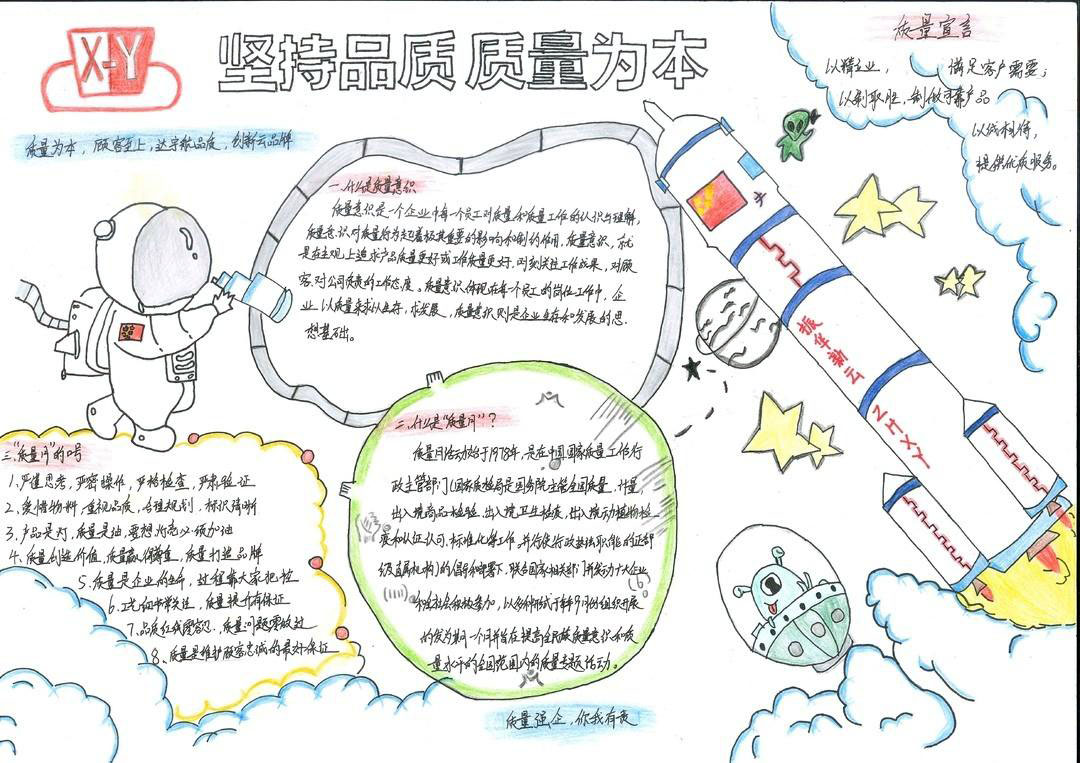 X-Y
坚持品质 质量为本
质量为本，顾客至上，达宇航品质，创新云品牌
质量宣言
以精立业，满足客户需要；
以新取胜，制做可靠产品
以诚相待，
提供优质服务。
一.什么是质量意识
质量意识是一个企业中每一个员工对质量和质量工作的认识与理解，
质量意识对质量行为起着极其重要的影响和制约作用，质量意识，就
是在主观上追求产品质量更好或工作质量更好，时刻关注工作成果，对顾
客对公司负责的工作态度，质量意识体现在每一个员工的岗位工作中，企
业以质量来求以生存，求发展，质量意识则是企业生存和发展的思
想基础。
振华新云
ZHXY
二.什么是"质量月"？
质量月活动始于1978年，是在中国国家质量工作行
政主管部门(国家质检局是国务院主管全国质量、计量、
出入境商品检验、出入境卫生检疫、出入境动植物检
疫和认证认可、标准化等工作，并行使行政执法职能的正部
级直属机构)的倡导和部署下，联合国家相关部门
质量水平的全国范围内的质量专题活动。
三."质量月"的口号
1.严谨思考，严密操作，严格检查，严肃验证
2.爱惜物料，重视品质，合理规划，标识清晰
3.产品是灯，质量是油，要想灯亮必须加油
4.质量创造价值，质量赢得尊重，质量打造品牌
5.质量是企业的生命，过程靠大家把控
6.工艺细节常关注，质量提升有保证
7.品质在我零容忍，质量问题零放过
8.质量是维护顾客忠诚的最好保证
质量强企，你我有责